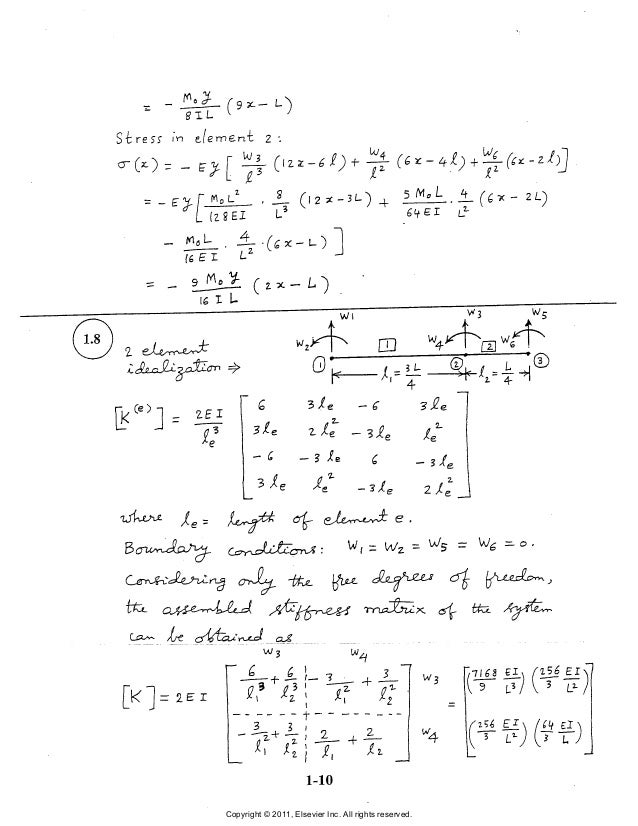 = - M₀ y / 8 I L (9x - L)
Stress in element 2:
σ(x) = - E y [ W3 / l³ (12x - 6l) + W4 / l² (6x - 4l) + W6 / l² (6x - 2l) ]
= - E y [ M₀ L² / 128 EI · 8 / L³ (12x - 3L) + 5 M₀ L / 64 EI · 4 / L² (6x - 2L)
- M₀ L / 16 EI · 4 / L² · (6x - L) ]
= - 9 M₀ y / 16 I L (2x - L)
1.8
2 element idealization ⇒
W1 W3 W5
W2 1 W4 2 W6
1 2 3
l₁ = 3L / 4 l₂ = L / 4
[K^(e)] = 2EI / lₑ³
6 3lₑ -6 3lₑ
3lₑ 2lₑ² -3lₑ lₑ²
-6 -3lₑ 6 -3lₑ
3lₑ lₑ² -3lₑ 2lₑ²
where lₑ = length of element e.
Boundary conditions: W1 = W2 = W5 = W6 = 0.
Considering only the free degrees of freedom,
the assembled stiffness matrix of the system
can be obtained as
W3 W4
[K] = 2EI
6 / l₁³ + 6 / l₂³ - 3 / l₁² + 3 / l₂² W3
- 3 / l₁² + 3 / l₂² 2 / l₁ + 2 / l₂ W4
=
(7168 / 9 EI / L³) (256 / 3 EI / L²)
(256 / 3 EI / L²) (64 / 3 EI / L)
1-10
Copyright © 2011, Elsevier Inc. All rights reserved.